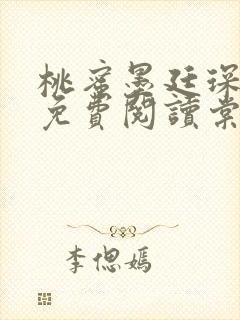 桃蜜墨廷琛
免費閱讀棠
李偲嫣